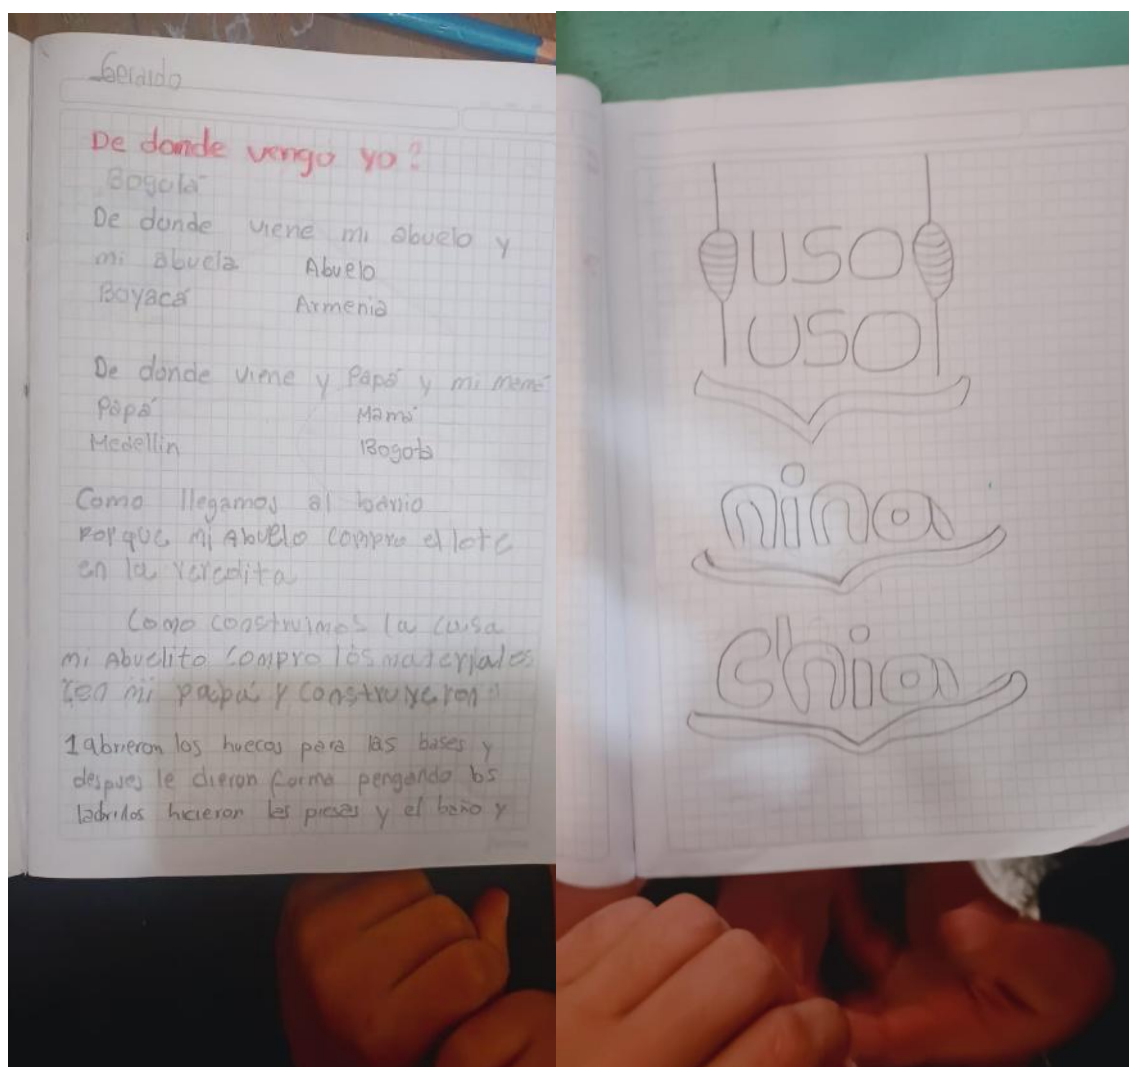 Gerardo
De donde vengo yo?
Bogotá
De donde viene mi abuelo y
mi abuela Abuelo
Boyacá Armenia
De donde viene y Papá y mi mamá
Papá Mamá
Medellin Bogota
Como llegamos al barrio
Por que mi Abuelo compro el lote
en la veredita
Como construimos la casa
mi Abuelito compro los materiales
con mi papá y construyeron
1 abrieron los huecos para las bases y
despues le dieron forma pengando los
ladrillos hicieron las piesas y el baño y
USO
USO
nina
chia